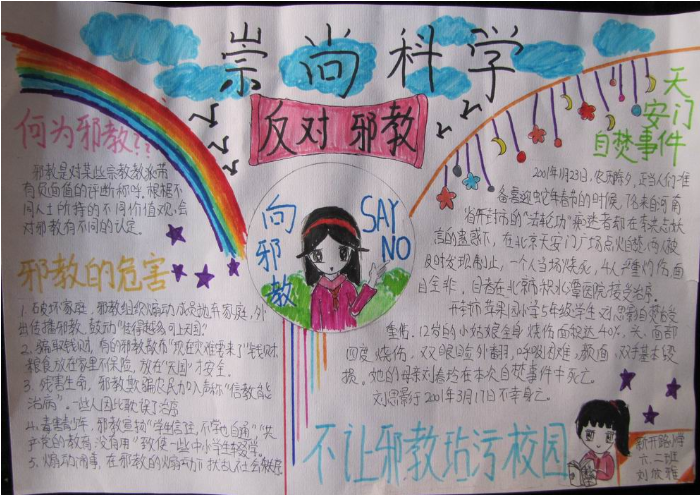 崇尚科学
反对邪教
何为邪教??
邪教是对某些宗教教派带
有负面值的评断称呼。根据不
同人士所持的不同价值观，会
对邪教有不同的认定。
邪教的危害
1、破坏家庭，邪教组织煽动成员抛弃家庭，外
出传播邪教，鼓动
2、骗取钱财，有的邪教散布"现在灾难要来了"
粮食放在家里不保险，放在"天国"才安全。
3、残害生命，邪教欺骗农民
治病"。一些人因此耽误了治疗
4、毒害青少年，邪教宣扬"学生信程，不学也自通""共
产党的教育，没有用"致使一些中小学生
5、煽动闹事，在邪教的煽动下
向邪教
SAY
NO
天
安门
自焚事件
2001年1月23日，农历除夕，正当人们准
备喜迎蛇年春节的时候，7名来自河南
省开封市的"法轮功"痴迷者却在李洪志妖
言的蛊惑下，在北京天安门广场点火自焚，两人被
及时发现制止，一个人当场烧死，4人严重灼伤，面
目全非，目前在北京积水潭医院接受治疗。
开封市苹果园小学5年级学生刘思影自焚受
重伤。12岁的小姑娘全身烧伤面积达40%，头、面部
四度烧伤，双眼睑外翻，呼吸困难，
损。她的母亲刘春玲在本次自焚事件中死亡。
刘思影于2001年3月17日不幸身亡。
不让邪教玷污校园
新开路小学
六二班